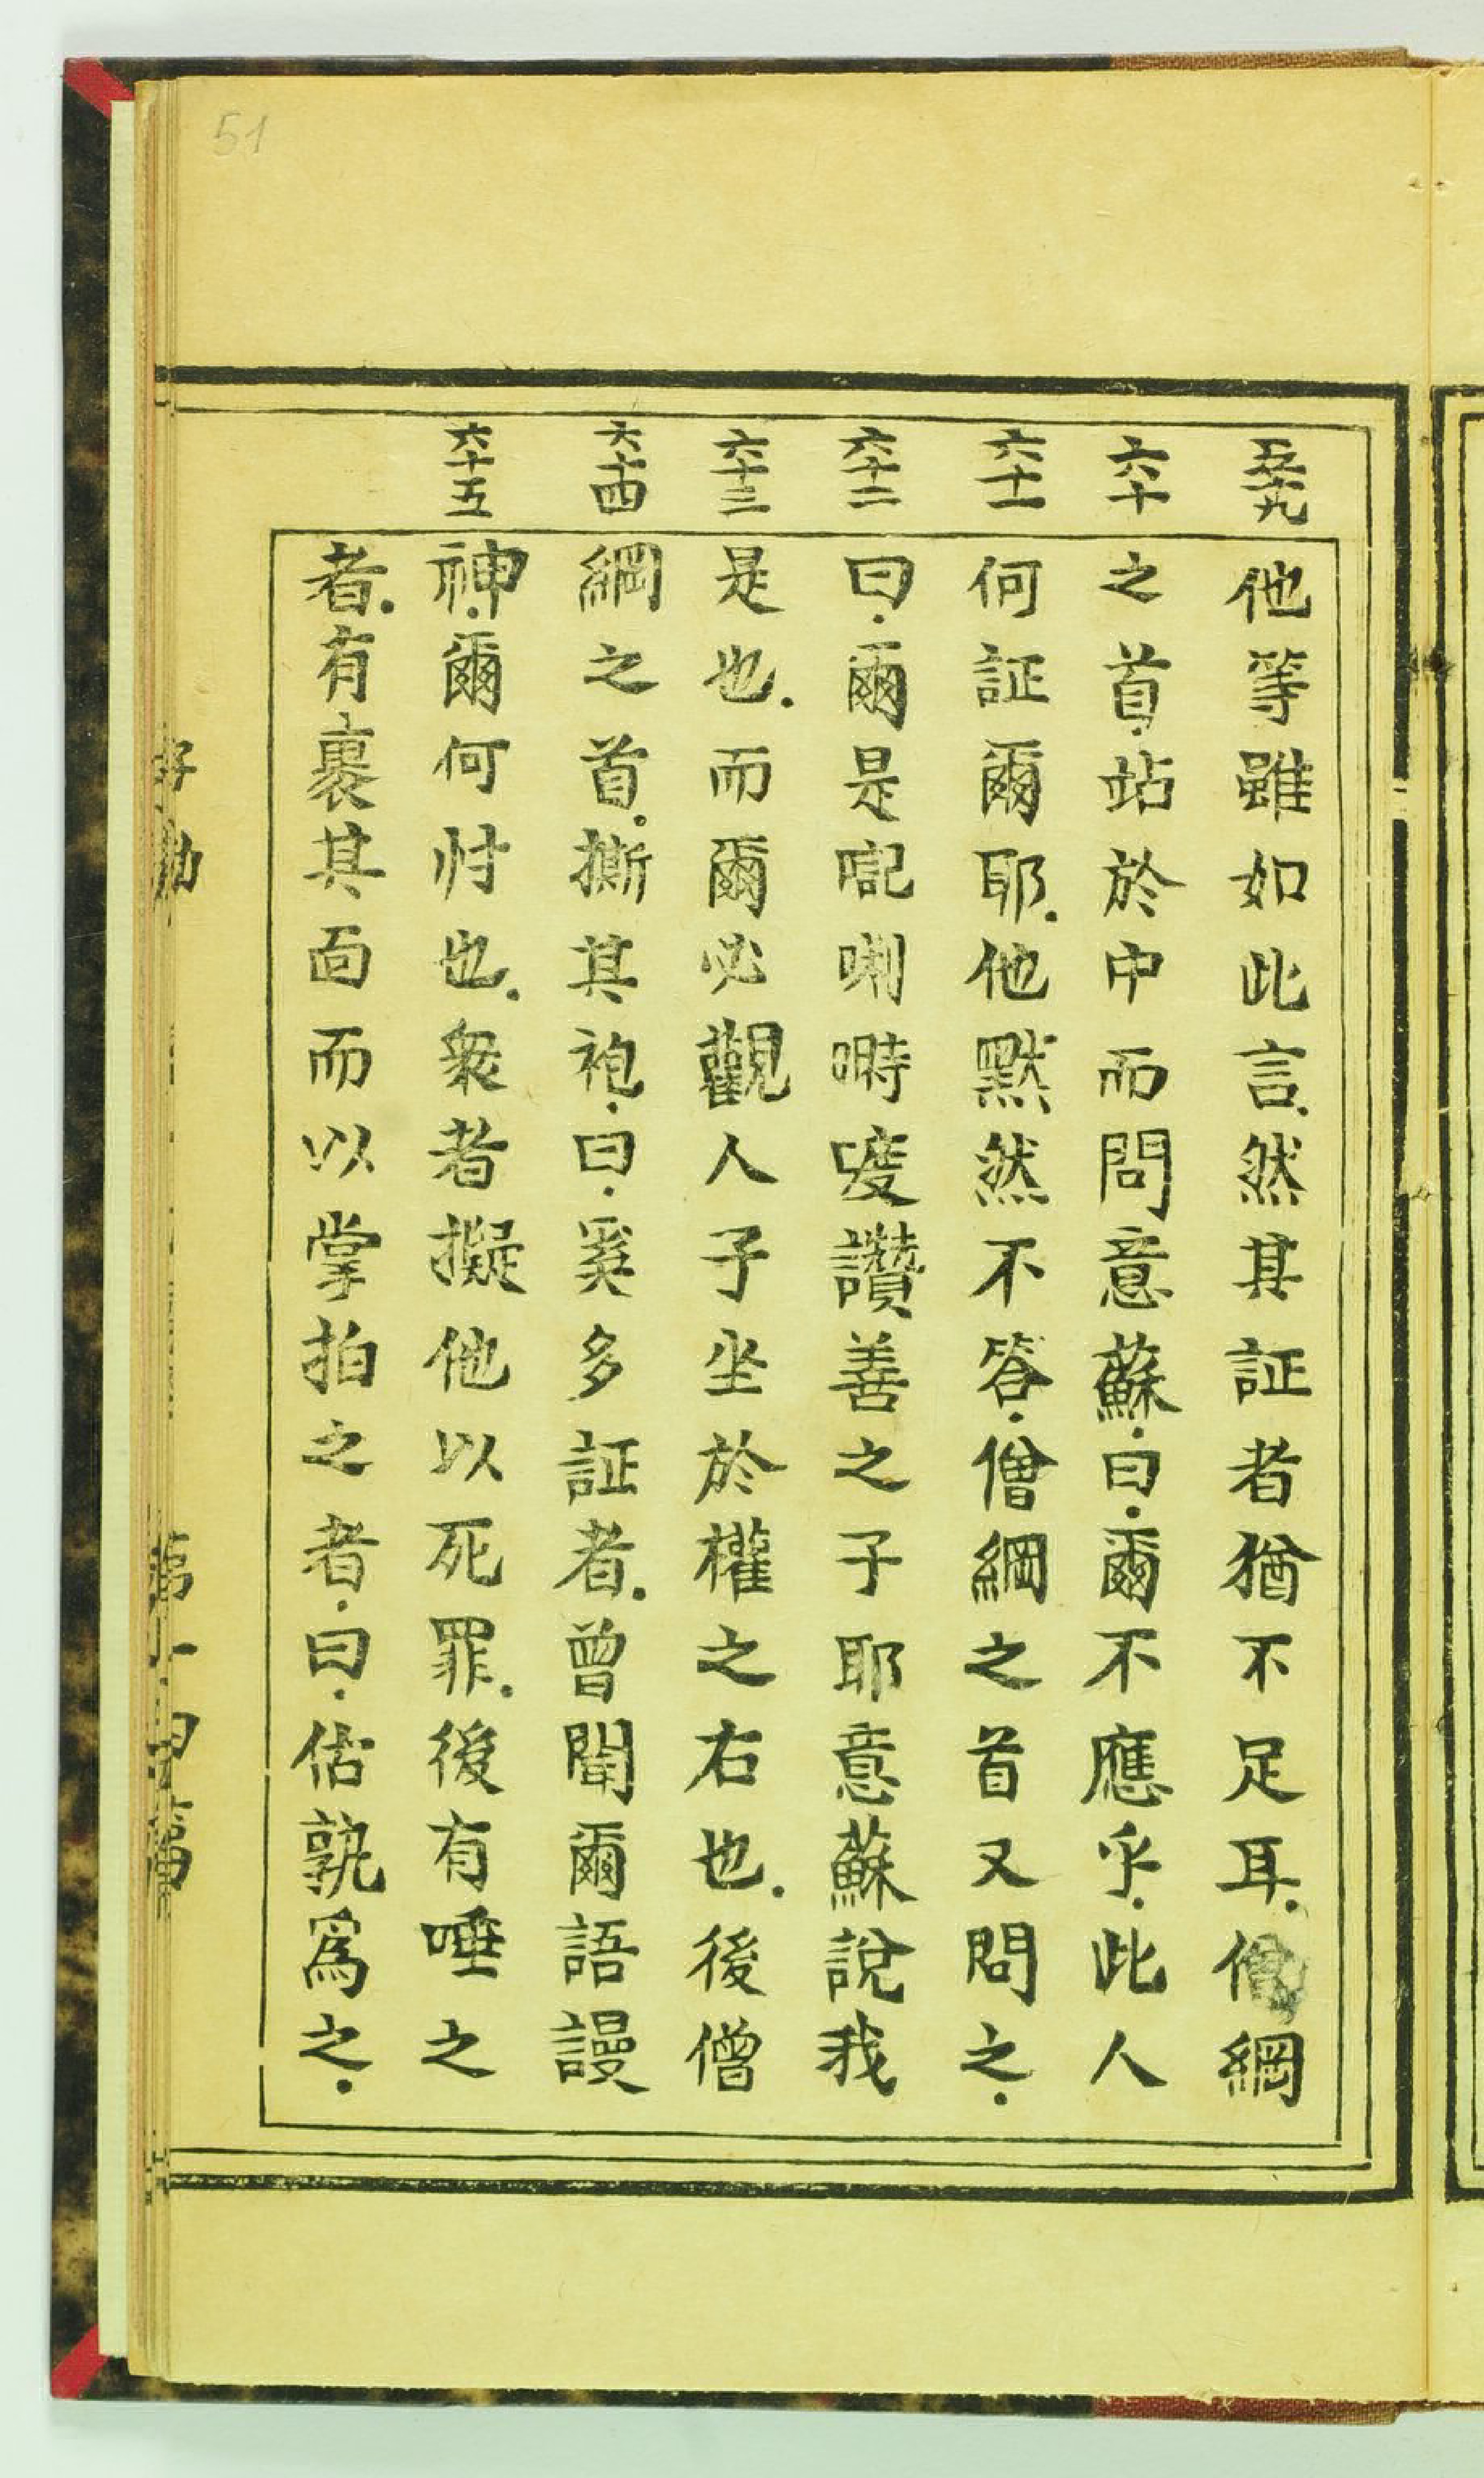 51
五十九
六十
六十一
六十二
六十三
六十四
六十五
他等雖如此言.然其証者猶不足耳.僧綱
之首.站於中而問意蘇.曰.爾不應乎.此人
何証爾耶.他默然不答.僧綱之首又問之.
曰.爾是㖠唎㗭𠹌讚善之子耶意蘇說我
是也.而爾必觀人子坐於權之右也.後僧
綱之首.撕其袍.曰.奚多証者.曾聞爾語謾
神.爾何忖也.衆者擬他以死罪.後有唾之
者.有裹其面而以掌拍之者.曰.估孰為之.
第十四篇